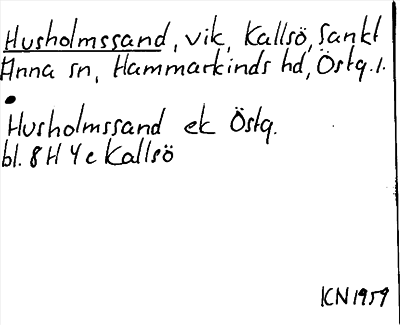 Husholmssand, vik, Kallsö, Sankt
Anna sn, Hammarkinds hd, Östg. l.
Husholmssand ek Östg.
bl. 8 H 4 e Kallsö
KN 1959